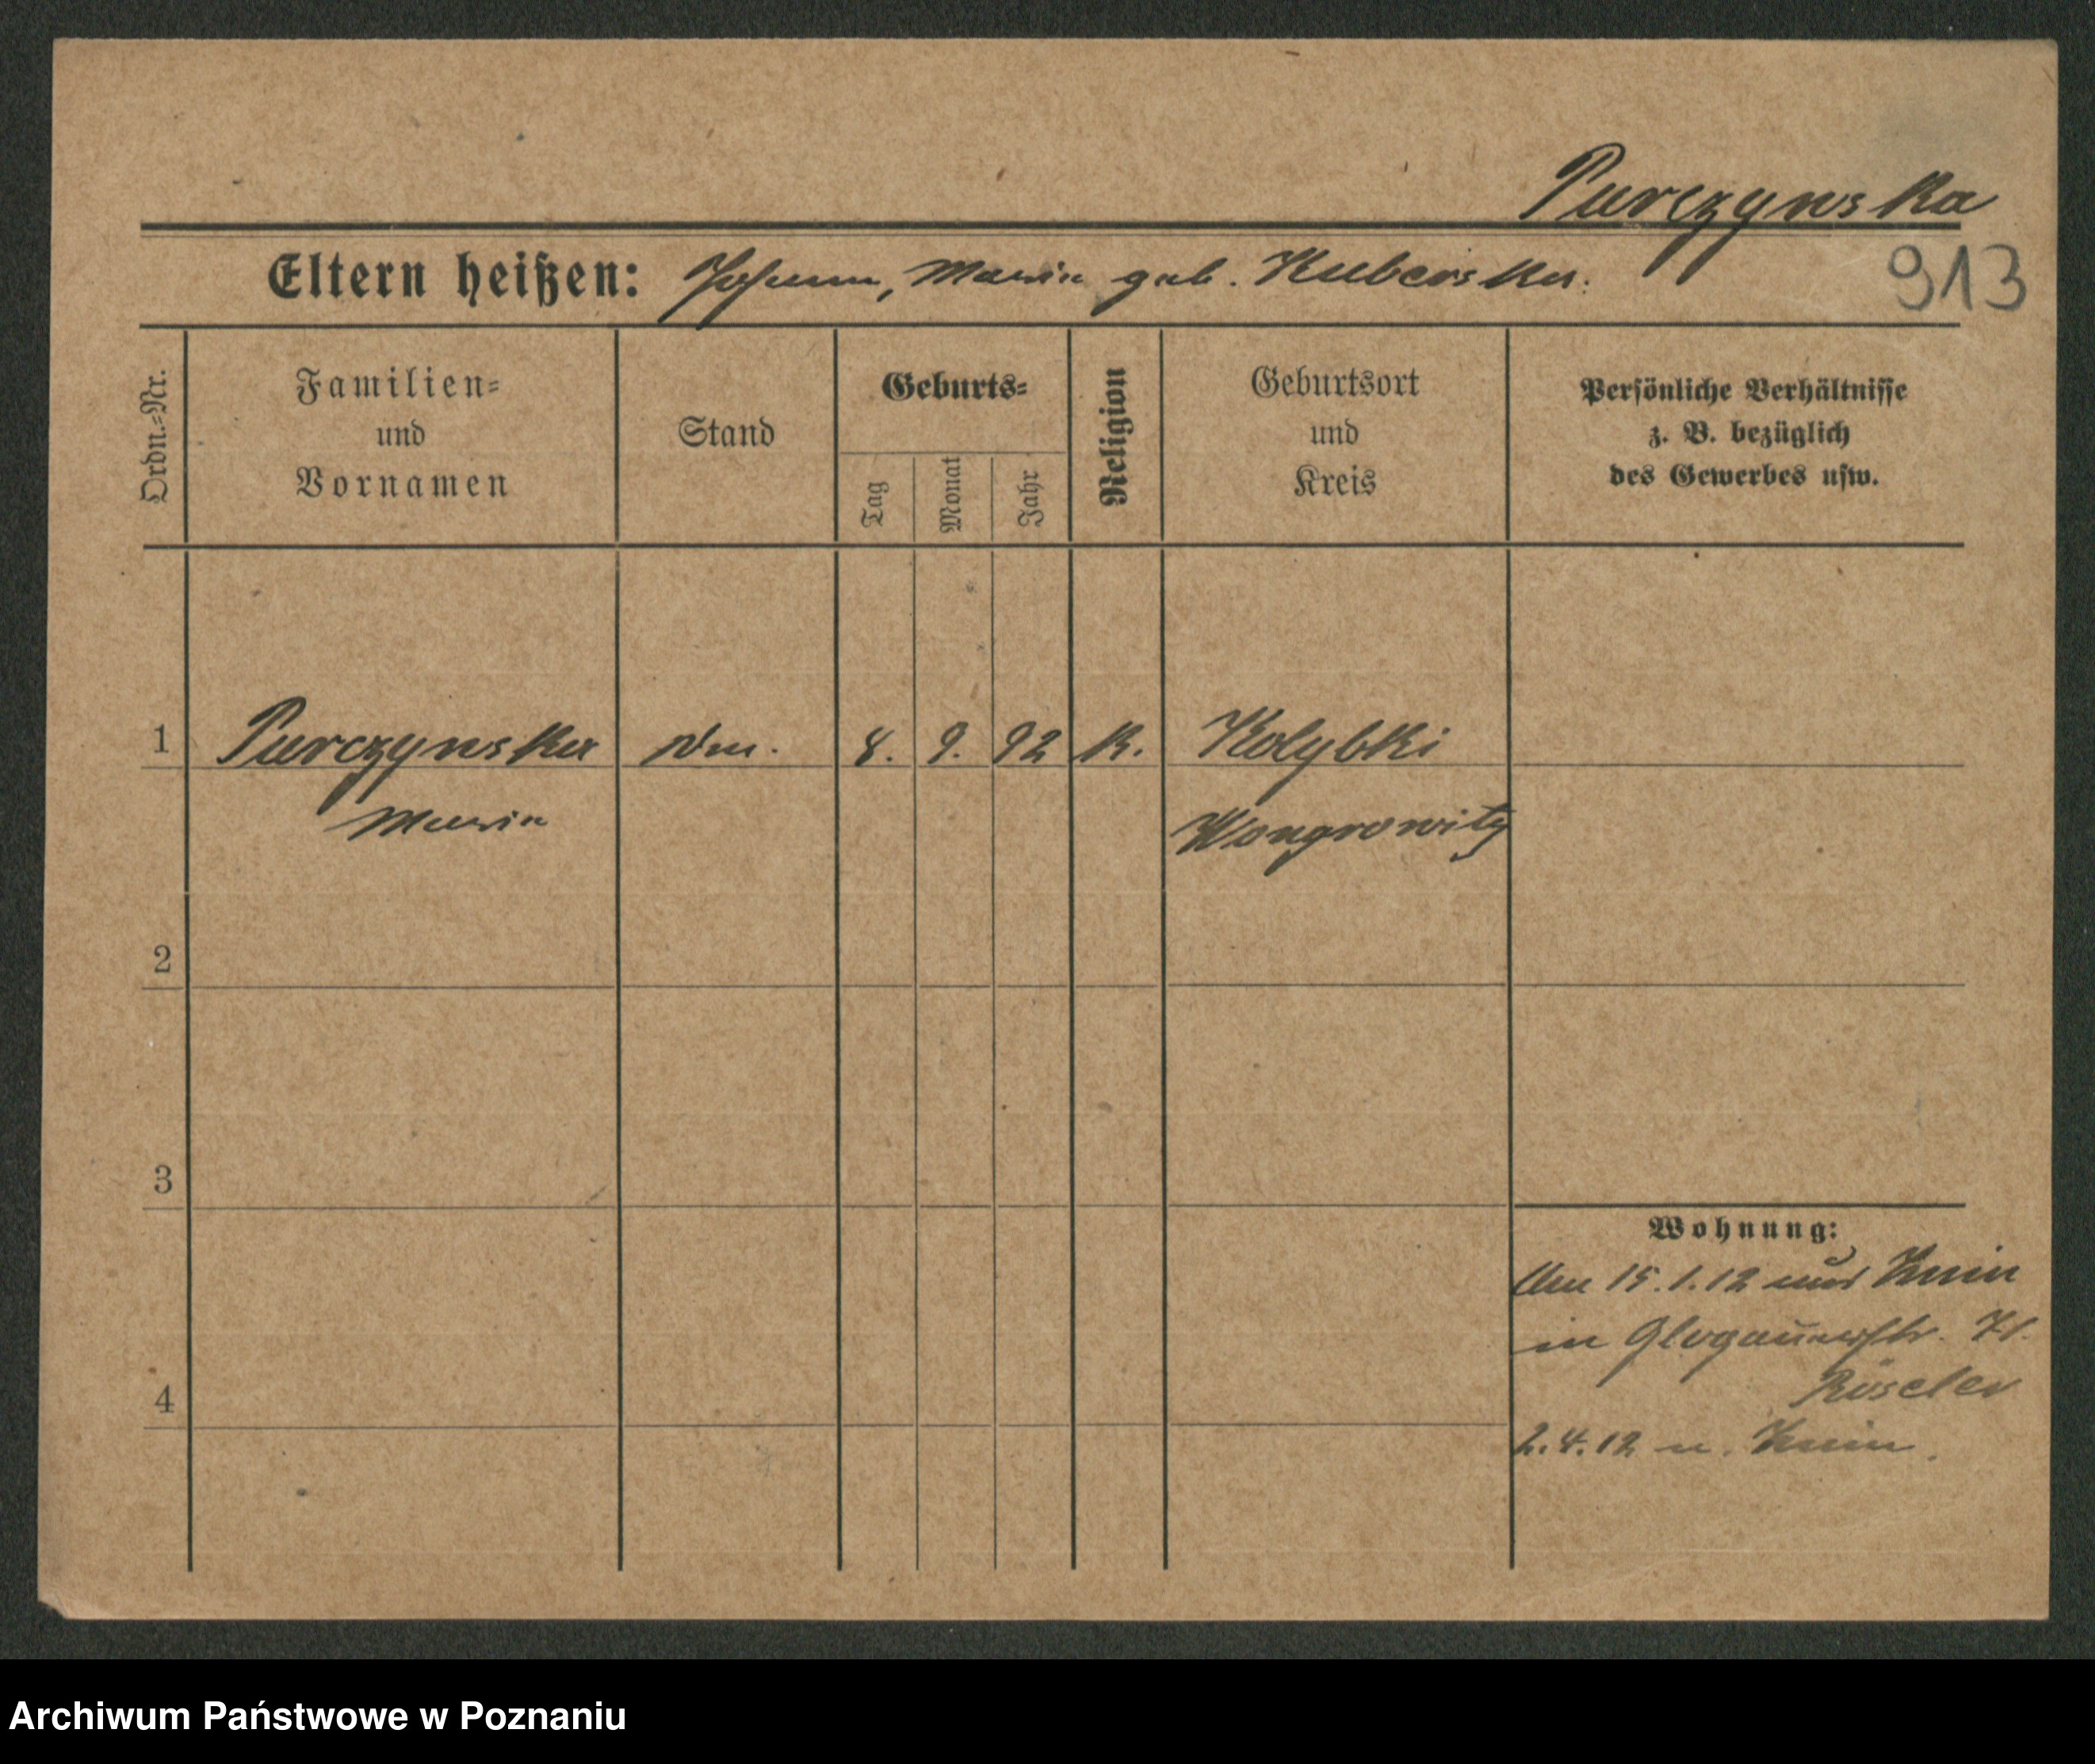 Purczynska
913
Eltern heißen: Johann, Maria geb. Kuberska.
Ordn.=Nr.
Familien=
und
Vornamen
Stand
Geburts=
Tag
Monat
Jahr
Religion
Geburtsort
und
Kreis
Persönliche Verhältnisse
z. B. bezüglich
des Gewerbes usw.
1 Purczynska 8. 9. 92 K. Kolybki
Maria Wongrowitz
2
3
Wohnung:
15.1.12 aus Znin
in Glogauerstr.
Röseler
4
2.4.12 n. Znin
Archiwum Państwowe w Poznaniu